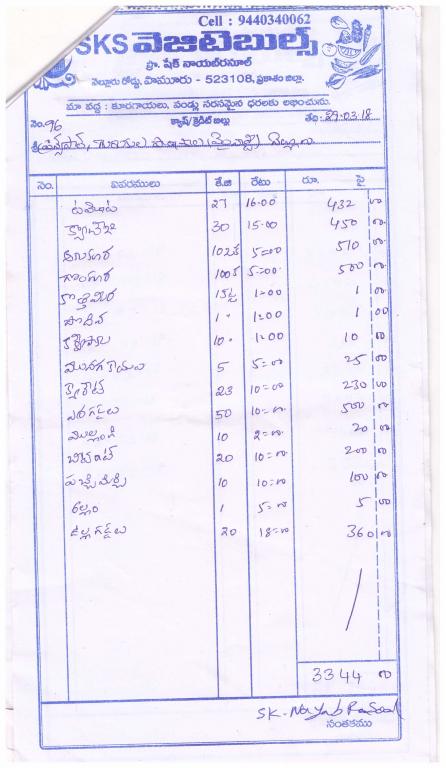 Cell : 9440340062
SKS వెజిటెబుల్స్
ప్రొ. షేక్ నాయబ్‌రసూల్
నెల్లూరు రోడ్డు, పామూరు - 523108, ప్రకాశం జిల్లా.
మా వద్ద : కూరగాయలు, పండ్లు సరసమైన ధరలకు లభించును.
నెం. 96 క్యాష్/క్రెడిట్ బిల్లు తేది: 29.03.18
శ్రీ
నెం. వివరములు కే.జి రేటు రూ. పై
టమాట 27 16.00 432 00
క్యాబేజి 30 15.00 450 00
5=00 510 00
గొంగూర 5=00 500 00
కొత్తిమీర 1=00 1 00
పొదిన 1 1=00 1 00
10 1=00 10 00
మునగకాయలు 5 5=00 25 00
క్యారెట్ 23 10=00 230 00
ఎర్రగడ్డలు 50 10=00 500 00
ముల్లంగి 10 2=00 20 00
బీట్రూట్ 20 10=00 200 00
పచ్చిమిర్చి 10 10=00 100 00
అల్లం 1 5=00 5 00
ఉల్లగడ్డలు 20 18=00 360 00
3344 00
SK. Nayab Rasool
సంతకము